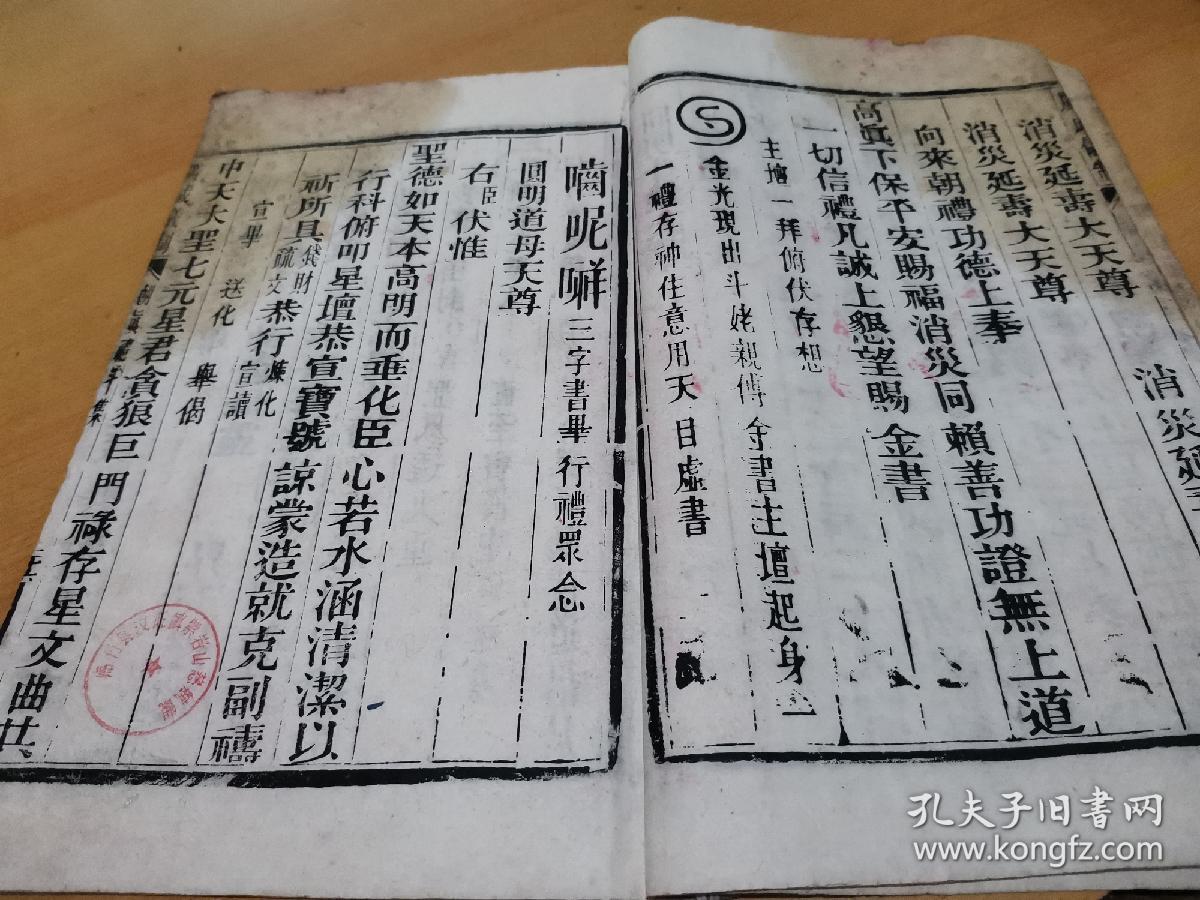 消災延壽大天尊 消災延
消災延壽大天尊
向來朝禮功德上奉
高眞下保平安賜福消災同賴善功證無上道
一切信禮凡誠上懇望賜 金書
主壇一拜俯伏存想
金光現出斗姥親傳金書主壇起身
一禮存神住意用天目虛書
三字書畢行禮眾念
圓明道母天尊
右臣伏惟
聖德如天本高明而垂化臣心若水涵清潔以
行科俯叩星壇恭宣寶號諒蒙造就克副禱
祈所具錢財疏文恭行煉化宣讀
宣畢 送化 舉偈
中天大聖七元星君貪狼巨門祿存星文曲共
孔夫子旧书网
www.kongfz.com